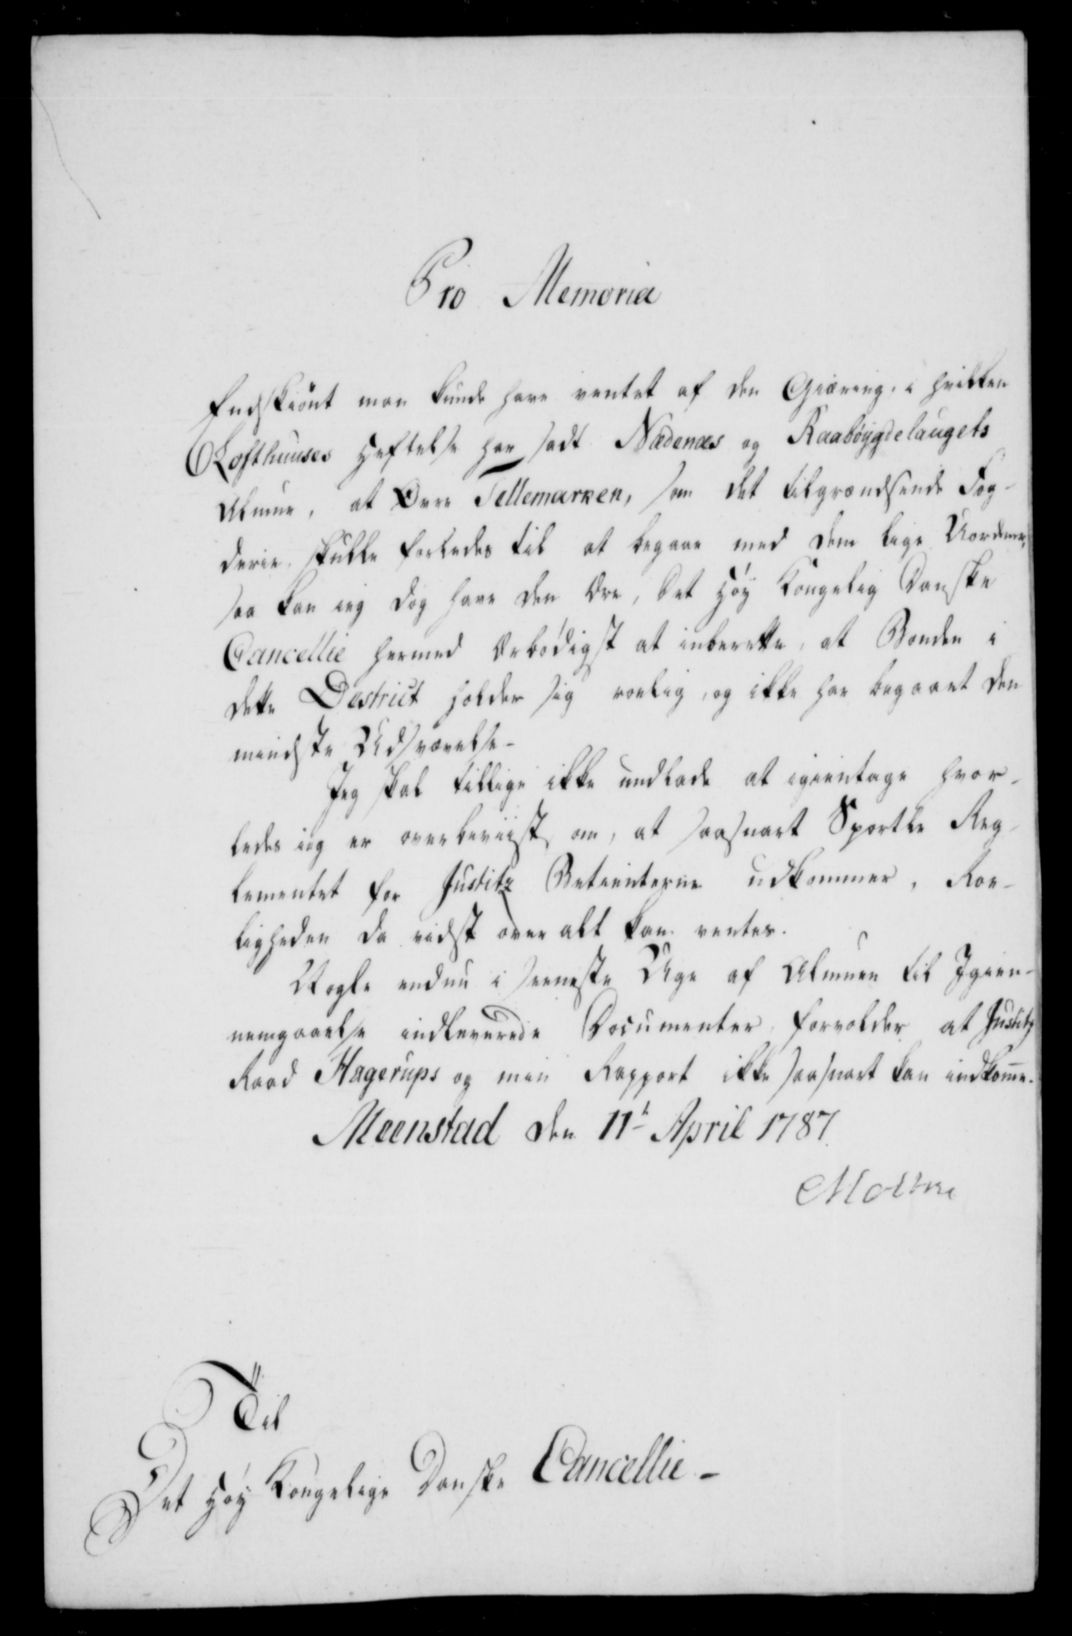 Pro Memoria
Endskiönt man kunde have ventet af den Giæring, i hvilken
Lofthuuses Heftelse har sadt Nædenæs og Raaböygdelaugets
Almue, at Øvre Tellemarken, som det tilgrændsende Fog-
derie, skulle forledes til at begaae med dem lige Uordener,
saa kan ieg dog have den Ære, Det Höy Kongelig Danske
Cancellie hermed Ærbödigst at inberette, at Bonden i
dette Destrict holder sig roelig, og ikke har begaaet den
mindste Udsvævelse-
Jeg skal tillige ikke undlade at igientage hvor-
ledes ieg er overbeviist om, at saasnart Sportle Reg-
lementet for Justitz Betienterne udkommer, Roe-
ligheden da vidst over alt kan ventes.
Nogle endnu i seeneste Uge af Almuen til Igien-
nemgaaelse indleverede Documenter, forvolder at Justitz
Raad Hagerups og min Rapport ikke saasnart kan indkom̄e.
Meenstad den 11t April 1787.
Moltke
Til
Det Höy Kongelige Danske Cancellie-